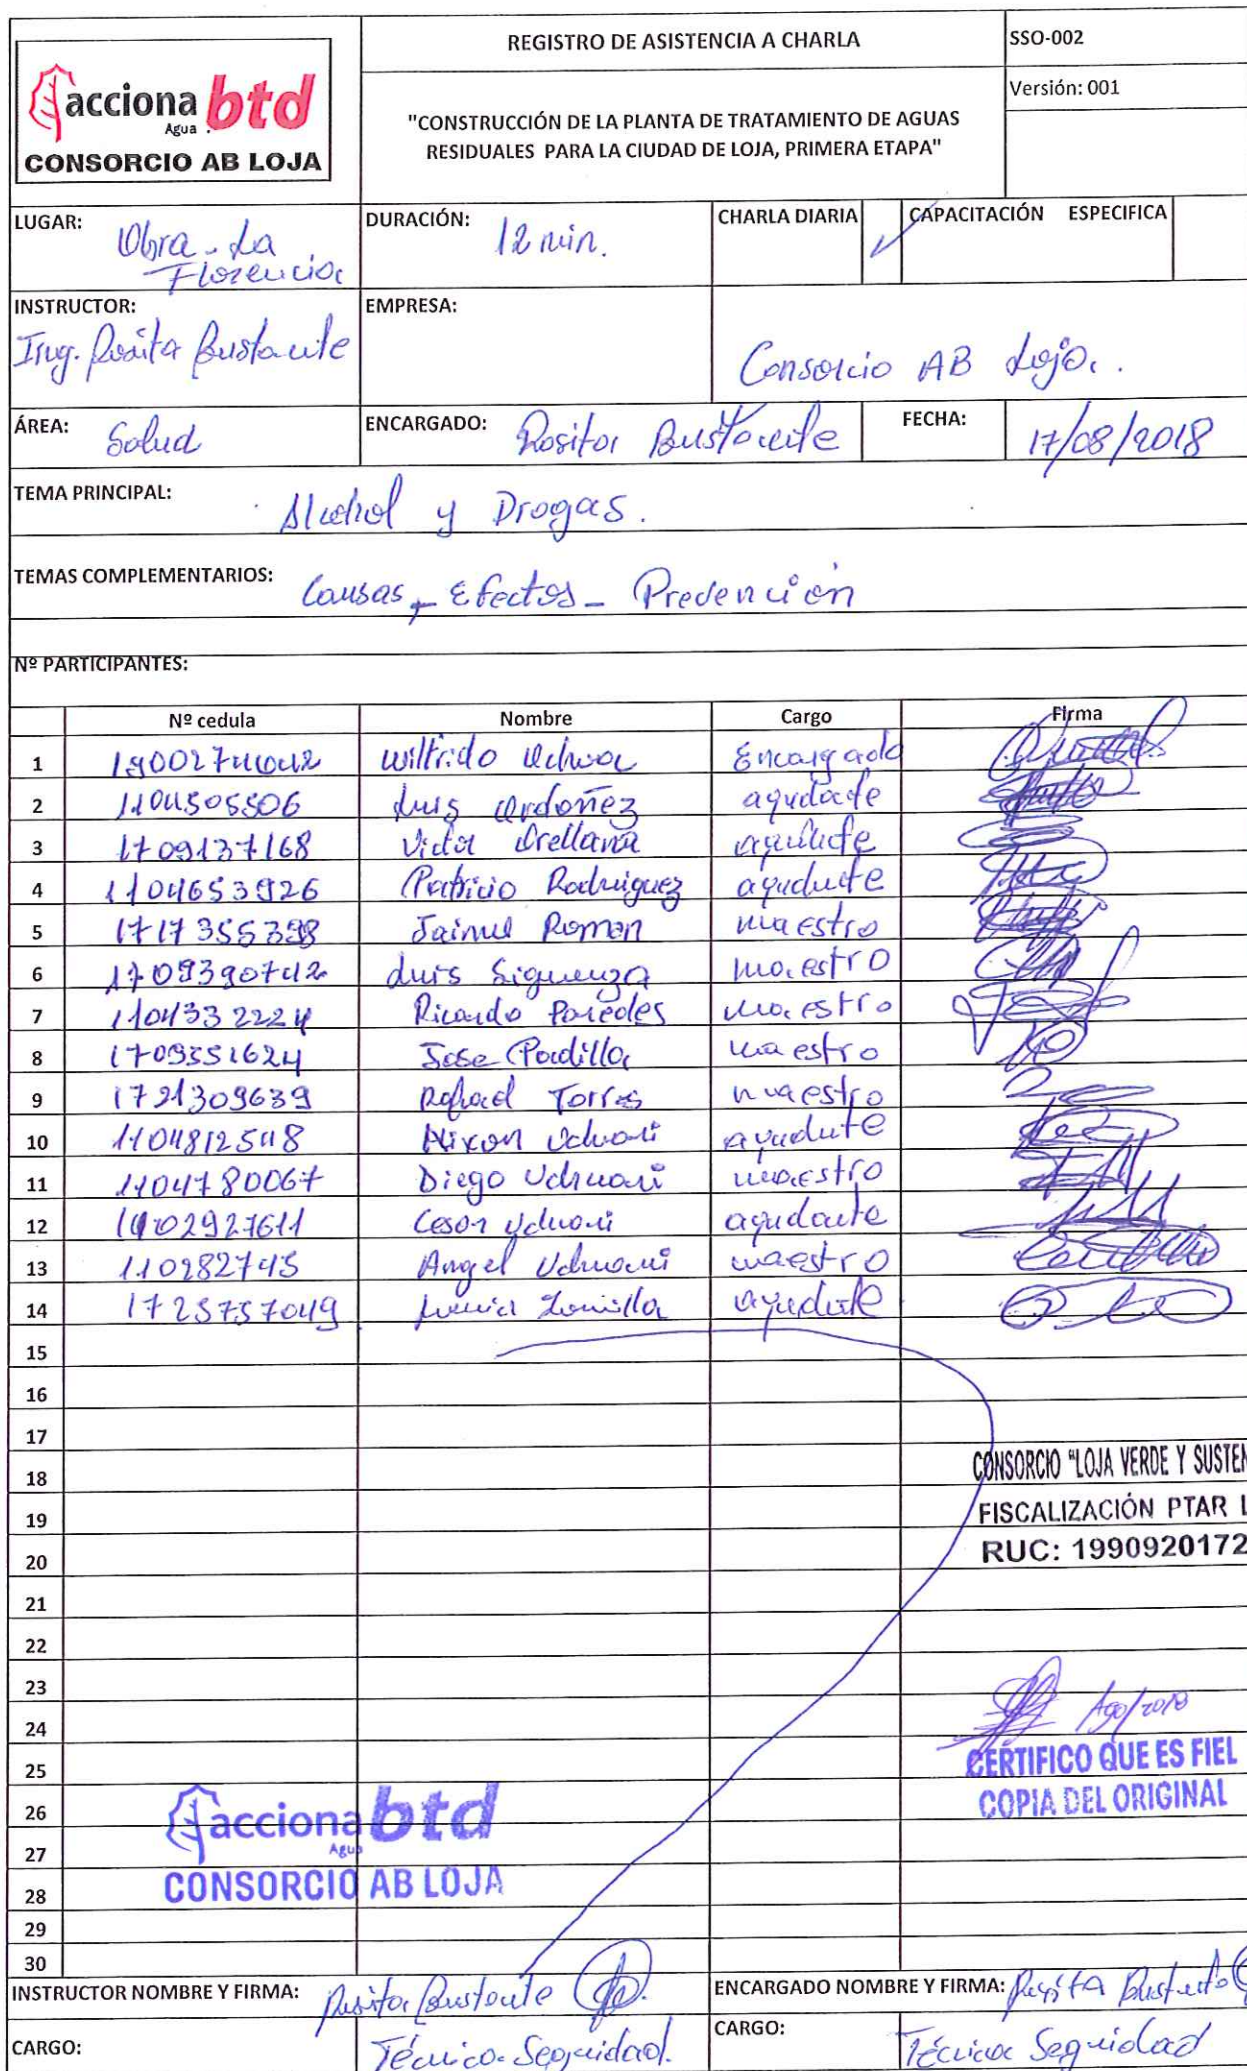 REGISTRO DE ASISTENCIA A CHARLA
SSO-002
acciona btd
Agua
CONSORCIO AB LOJA
Versión: 001
"CONSTRUCCIÓN DE LA PLANTA DE TRATAMIENTO DE AGUAS
RESIDUALES PARA LA CIUDAD DE LOJA, PRIMERA ETAPA"
LUGAR: Obra - La
Florencia
DURACIÓN: 12 min.
CHARLA DIARIA ✓
CAPACITACIÓN ESPECIFICA
INSTRUCTOR:
Ing. Rosita Bustamante
EMPRESA:
Consorcio AB Loja.
ÁREA: Salud
ENCARGADO: Rosita Bustamante
FECHA: 17/08/2018
TEMA PRINCIPAL: Alcohol y Drogas.
TEMAS COMPLEMENTARIOS: Causas - Efectos - Prevención
Nº PARTICIPANTES:
Nº cedula Nombre Cargo Firma
1 Wilfrido Encargado
2 1104505506 Luis Ordoñez ayudante
3 1709137168 Victor Orellana ayudante
4 1104653926 Patricio Rodriguez ayudante
5 1717355398 Jaime Roman maestro
6 1709390742 Luis Siguenza maestro
7 1104332224 Ricardo Paredes maestro
8 1709551624 Jose Padilla maestro
9 1721309639 Rafael Torres maestro
10 1104812548 Nixon Uchuari ayudante
11 1104780067 Diego Uchuari maestro
12 Cesar Uchuari ayudante
13 110282745 Angel Uchuari maestro
14 1725757049 ayudante
15
16
17
18
19
20
21
22
23
24
25
26
27
28
29
30
CONSORCIO "LOJA VERDE Y SUSTEN
FISCALIZACIÓN PTAR L
RUC: 1990920172
Ago/2018
CERTIFICO QUE ES FIEL
COPIA DEL ORIGINAL
acciona btd
Agua
CONSORCIO AB LOJA
INSTRUCTOR NOMBRE Y FIRMA: Rosita Bustamante
ENCARGADO NOMBRE Y FIRMA: Rosita Bustamante
CARGO: Técnico Seguridad.
CARGO: Técnico Seguridad